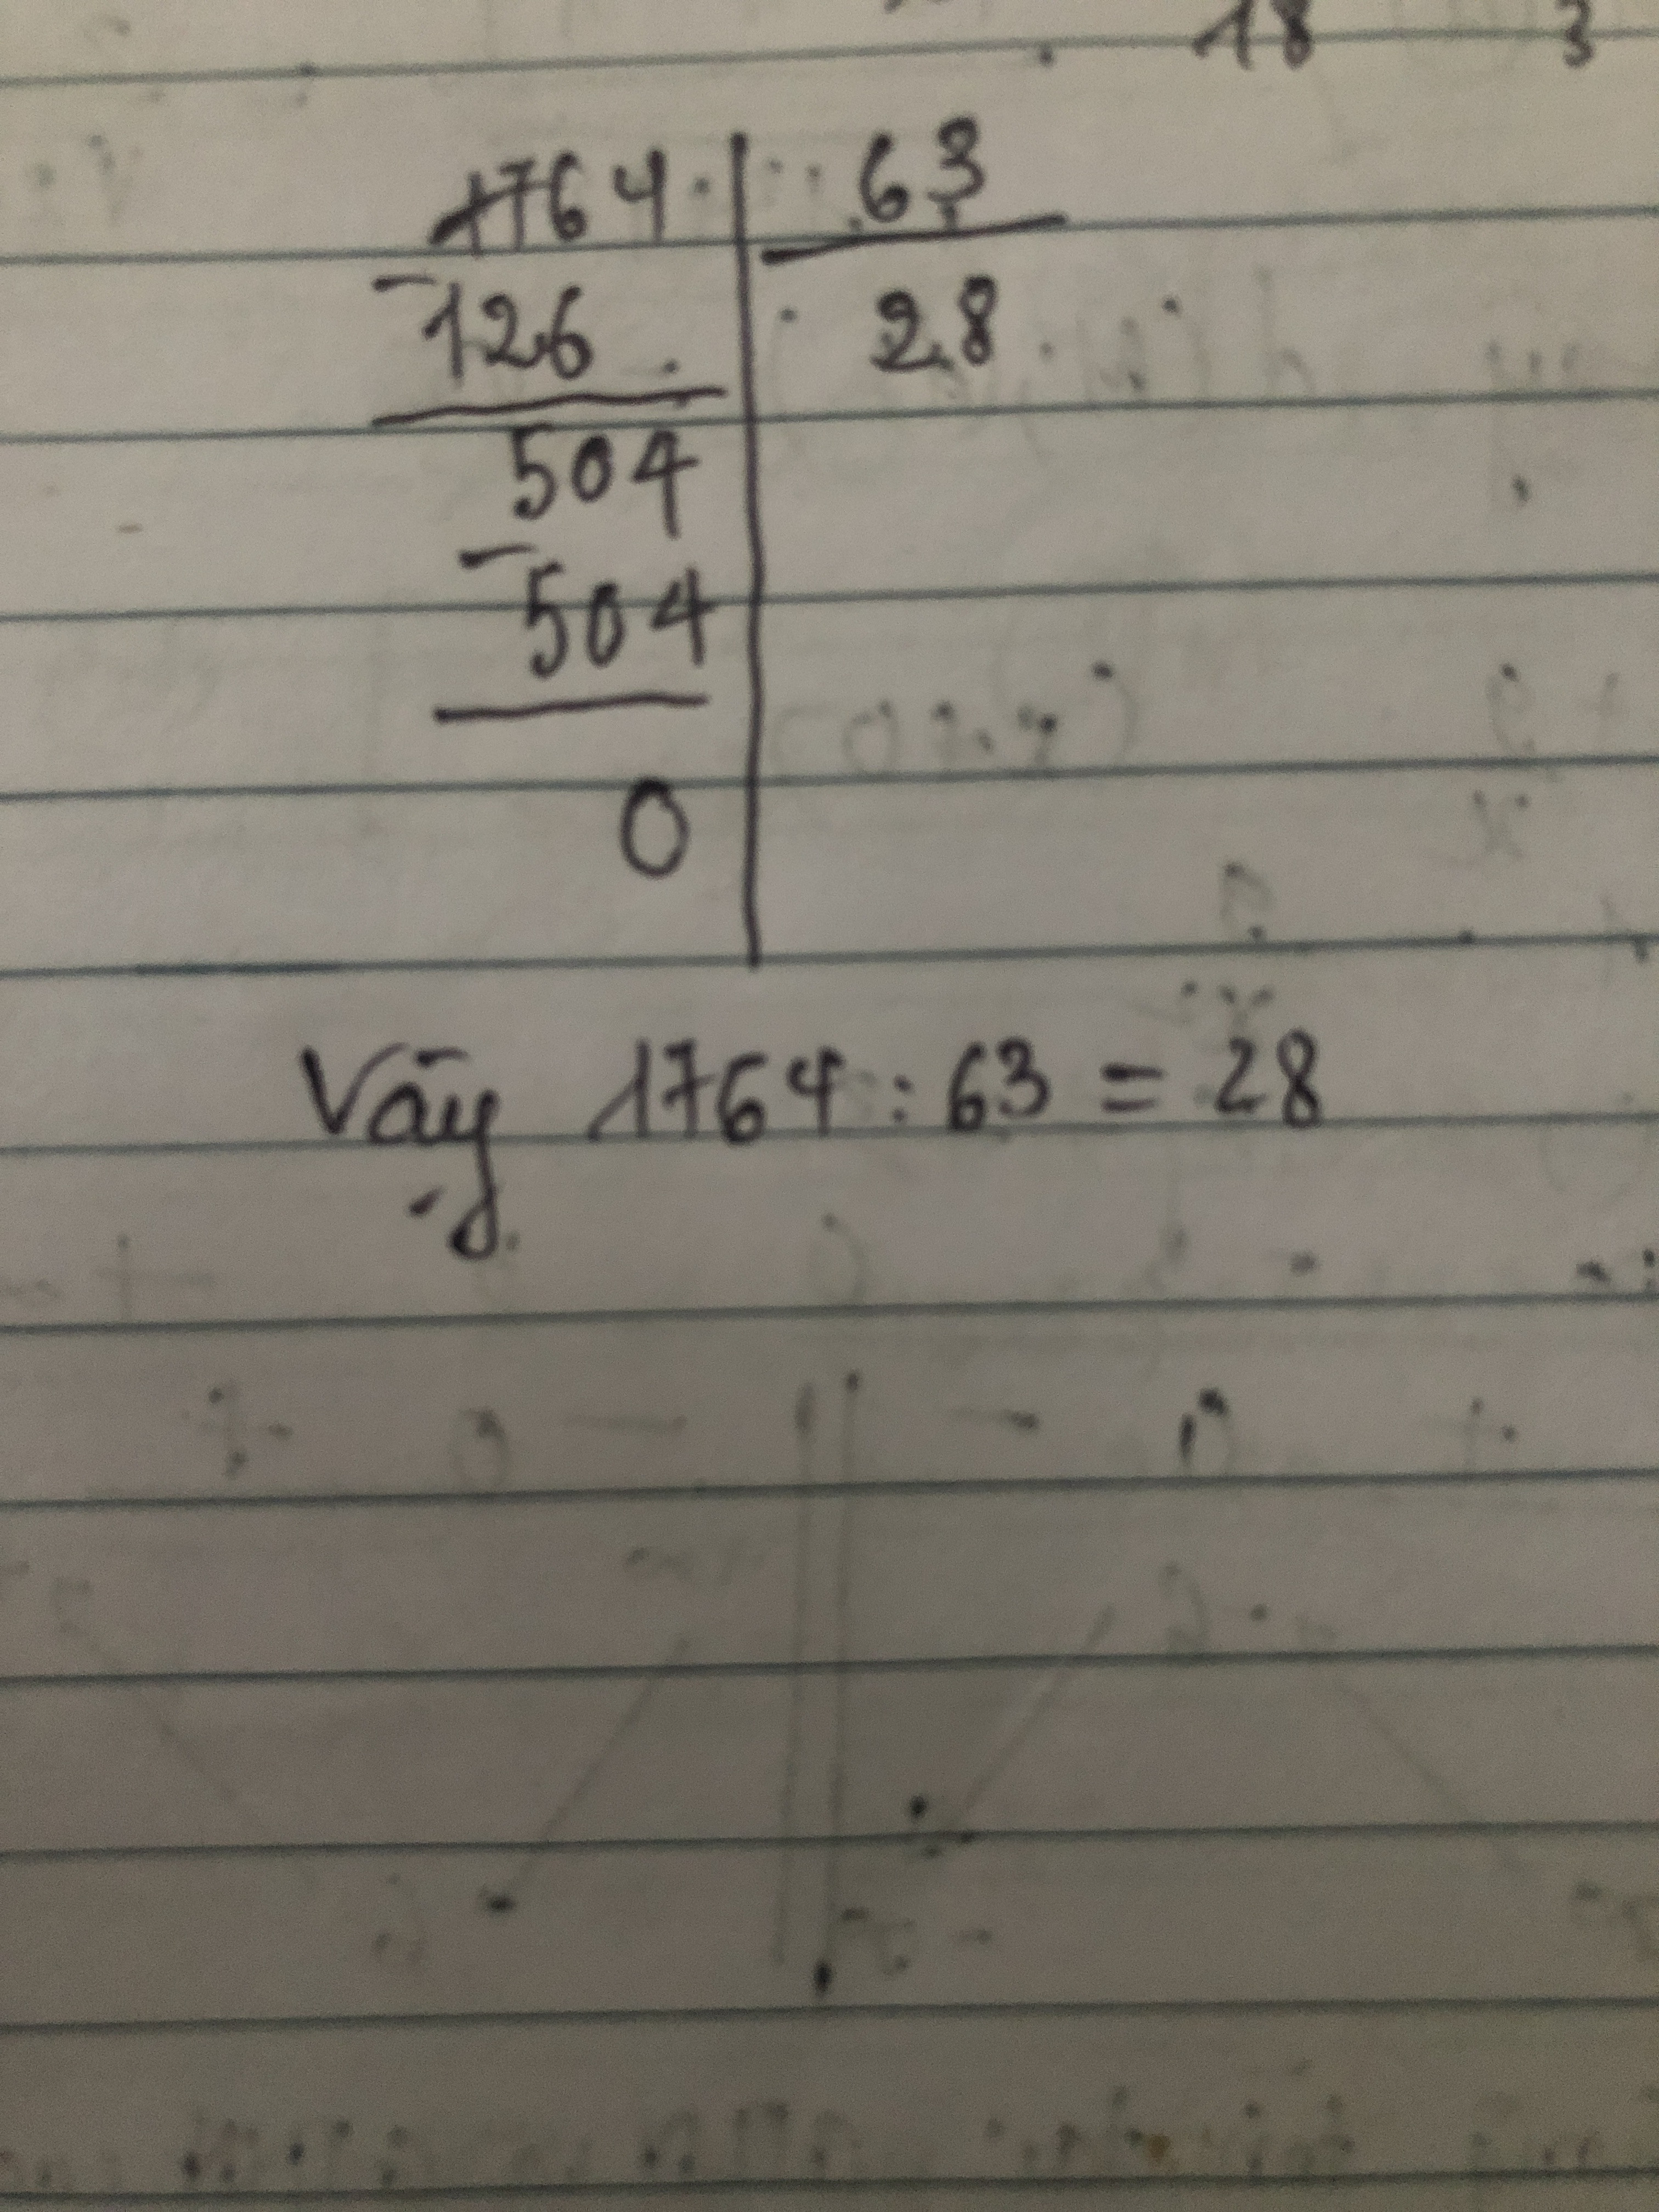 18 3
1764 63
-126 28
504
-504
0
Vậy 1764 : 63 = 28